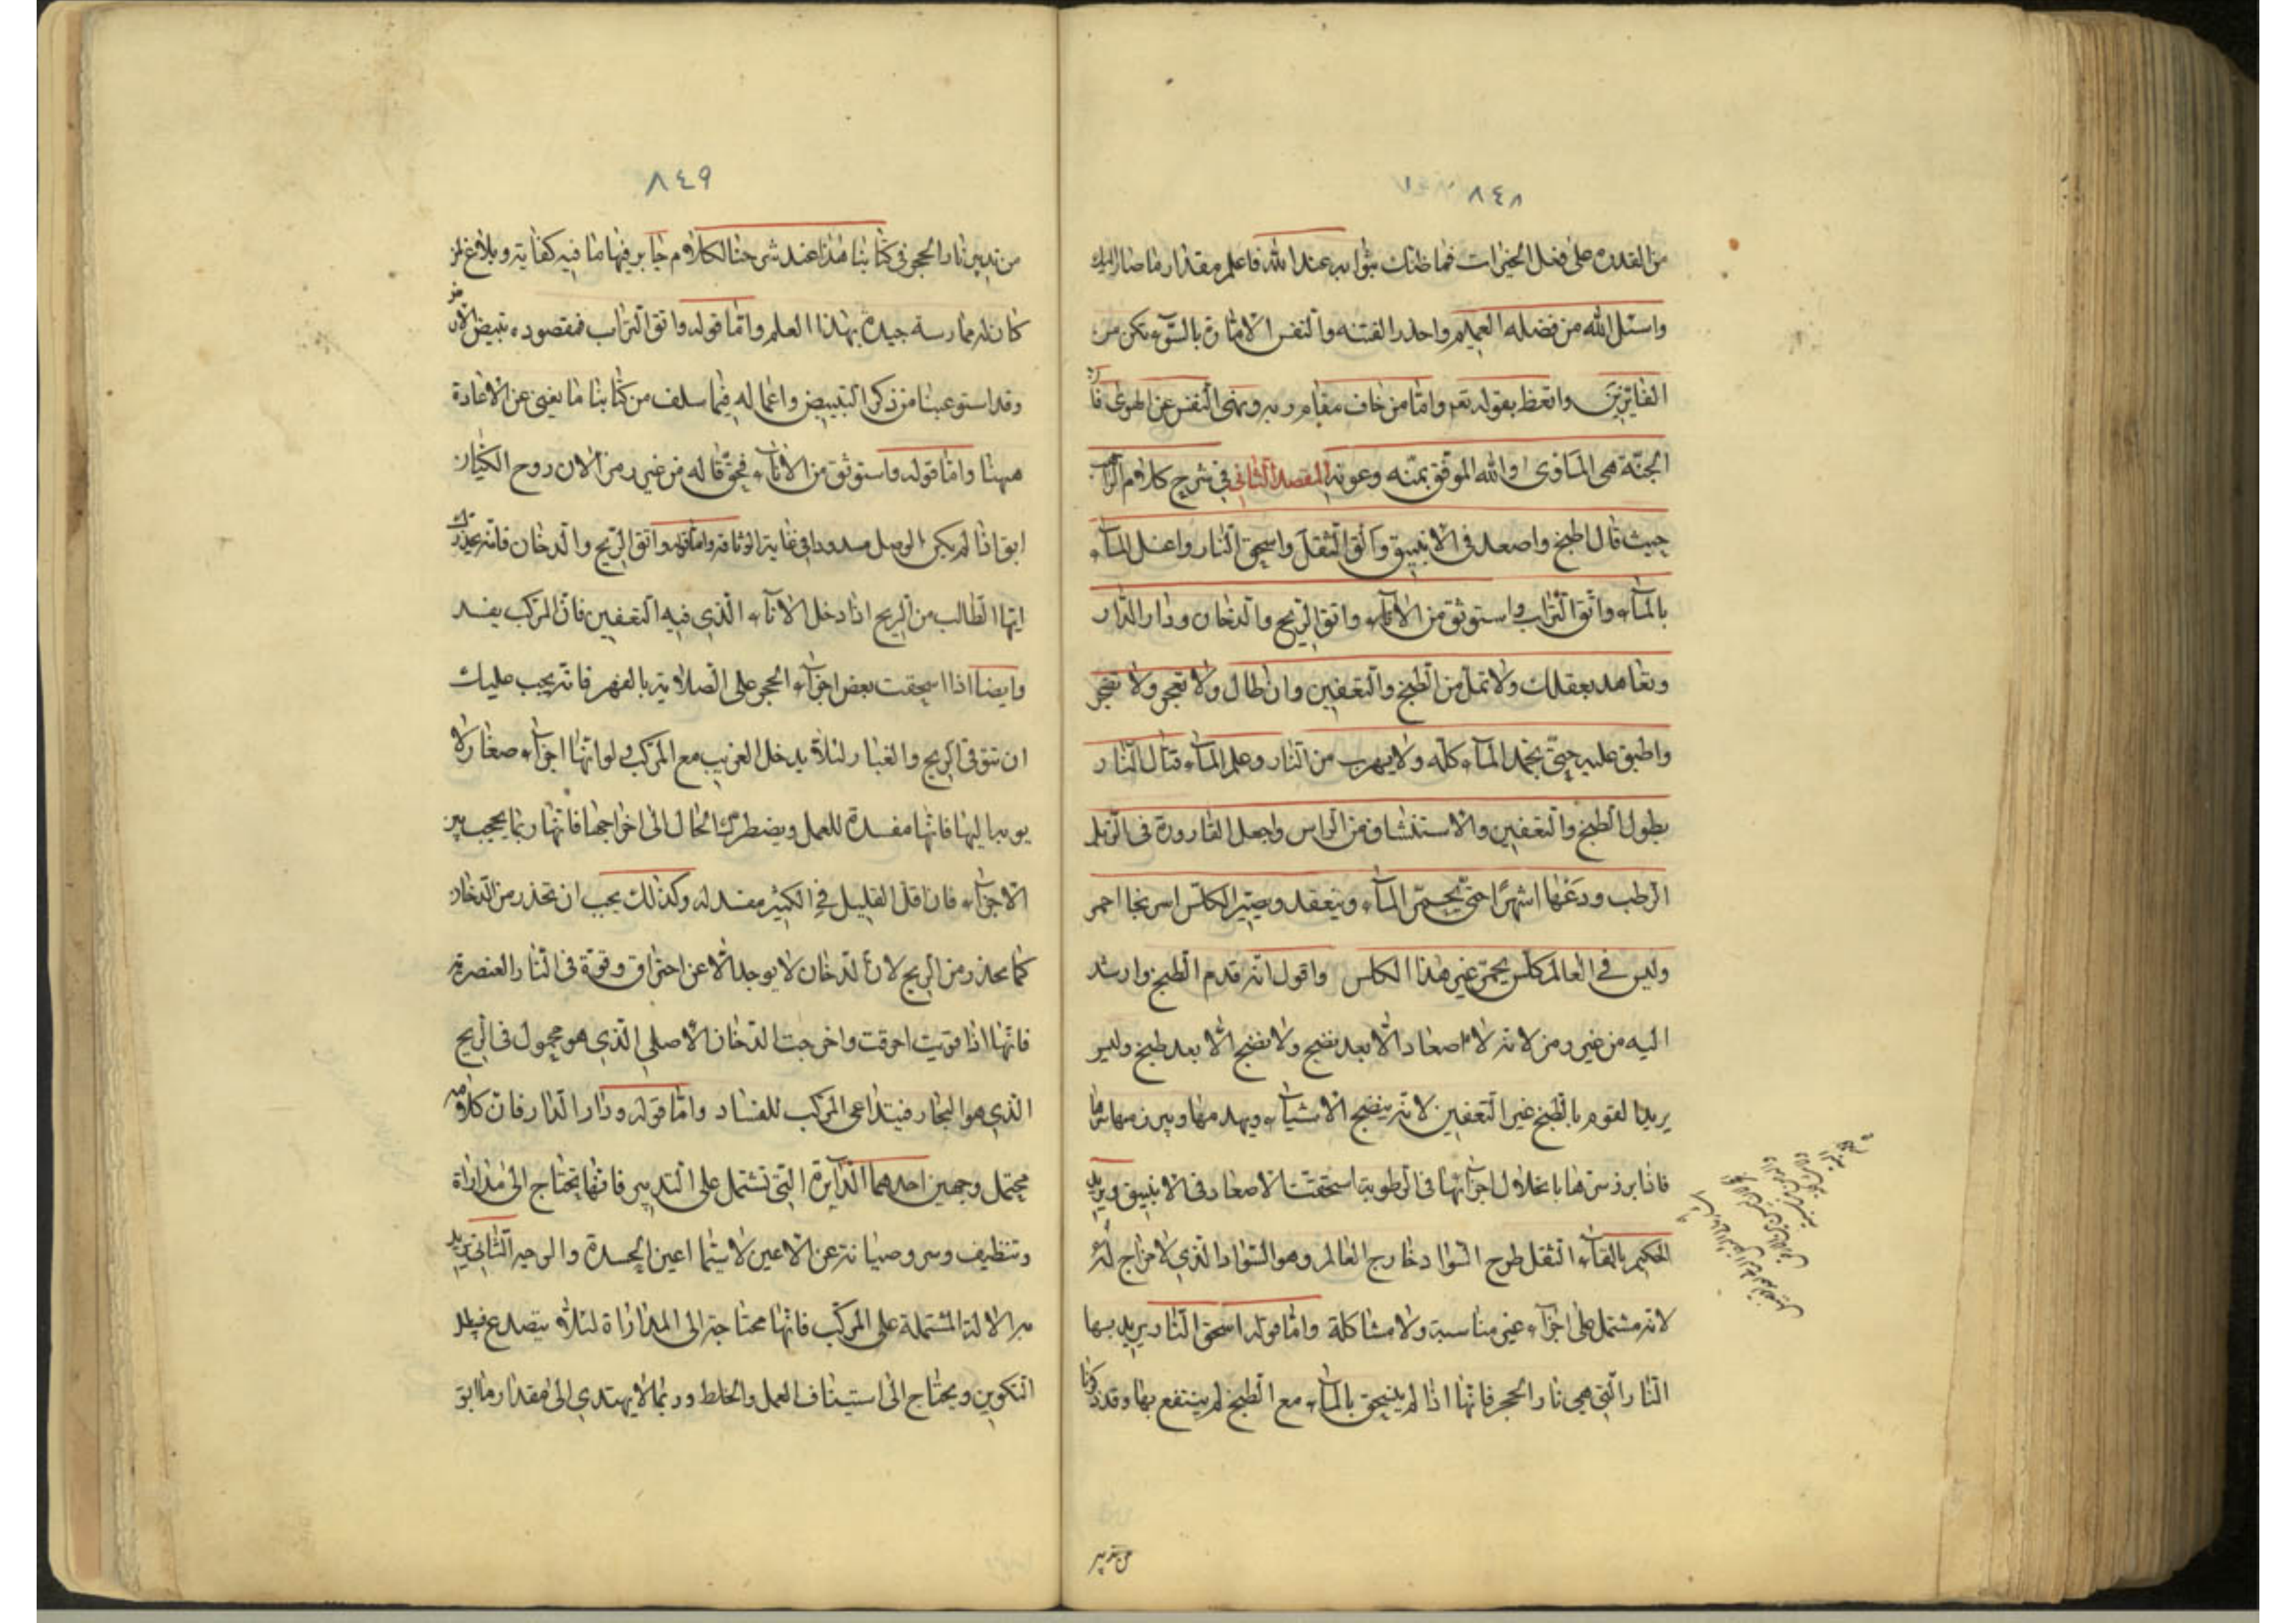 ٨٤٨
من القدرة على فعل الخيرات فما ظنك بثوابه عند الله فاعلم مقدار ما صار اليك
واسئل الله من فضله العميم واحذر الفتنه والنفس الامارة بالسوء تكن من
الفايزين واتعظ بقوله تع واما من خاف مقام ربه ونهى النفس عن الهوى فان
الجنة هى المأوى والله الموفق بمنه وعونه المقصد الثانى فى شرح كلام الراهب
حيث قال اطبخ واصعد فى الانبيق وألق الثفل واسحق النار واغسل الماء
بالماء واتق التراب واستوثق من الاناء واتق الريح والدخان ودار الدار
وتعاهد بعقلك ولا تمل من الطبخ والتعفين وان طال ولا تعجز ولا تضجر
واطبق عليه حتى يخمد الماء كله ولا يهرب من النار وعلم الماء قتال النار
بطول الطبخ والتعفين والاستنشاق من الراس واجعل القارورة فى الزبل
الرطب ودعها اشهرا حتى يحمر الماء وينعقد ويصير الكلس اسرنجا احمر
وليس فى العالم كلس يحمر غير هذا الكلس واقول انه قدم الطبخ وارشد
اليه من غير رمز لانه لا اصعاد الا بعد نضج ولا نضج الا بعد طبخ وليس
يريد القوم بالطبخ غير التعفين لانه ينضج الاشياء ويهدمها ويبرزها
فاذا برزت بانحلال اجزائها فى الرطوبة استحقت الاصعاد فى الانبيق ويريد
الحكيم بالقاء الثفل طرح السواد خارج العالم وهو السواد الذى لا مزاج له
لانه مشتمل على اجزاء غير مناسبة ولا مشاكلة واما قوله اسحق النار يريد بها
النار التى هى نار الحجر فانها اذا لم ينسحق بالماء مع الطبخ لم ينتفع بها وقد ذكرنا
من تدبير
٨٤٩
من تدبير نار الحجر فى كتابنا هذا عند شرحنا لكلام جابر فيها ما فيه كفاية وبلاغ لمن
كان له ممارسة جيدة بهذا العلم واما قوله واتق التراب فمقصوده تبييض الارض
وقد استوعبنا من ذكر التبييض واعماله فيما سلف من كتابنا ما يغنى عن الاعادة
ههنا واما قوله واستوثق من الاناء فحق قاله من غير رمز لان روح الكيان
ابق اذا لم يكن الوصل مسدودا فى غاية الوثاقة واما قوله واتق الريح والدخان فانه يحذرك
ايها الطالب من الريح اذا دخل الاناء الذى فيه التعفين فان المركب يفسد
وايضا اذا سحقت بعض اجزاء الحجر على الصلاية بالفهر فانه يجب عليك
ان تتوقى الريح والغبار لئلا يدخل الغريب مع المركب ولو انها اجزاء صغار لا
يوبه اليها فانها مفسدة للعمل ويضطرك الحال الى اخراجها فانها ربما يحجب بين
الاجزاء فان اقل القليل فى الكثير مفسد له وكذلك يجب ان تحذر من الدخان
كما تحذر من الريح لان الدخان لا يوجد الا عن احتراق وقوة فى النار العنصرية
فانها اذا قويت احرقت واخرجت الدخان الاصلى الذى هو محمول فى الريح
الذى هو البخار فيتداعى المركب للفساد واما قوله ودار الدار فان كلامه
محتمل وجهين احدهما الدايرة التى تشتمل على التدبير فانها تحتاج الى مداراة
وتنظيف وسر وصيانة عن الاعين لا سيما اعين الحسدة والوجه الثانى يريد
به الالة المشتملة على المركب فانها محتاجة الى المداراة لئلا يتصدع فيبطل
التكوين ويحتاج الى استيناف العمل والخلط وربما لا يهتدى الى مقدار ما ابق